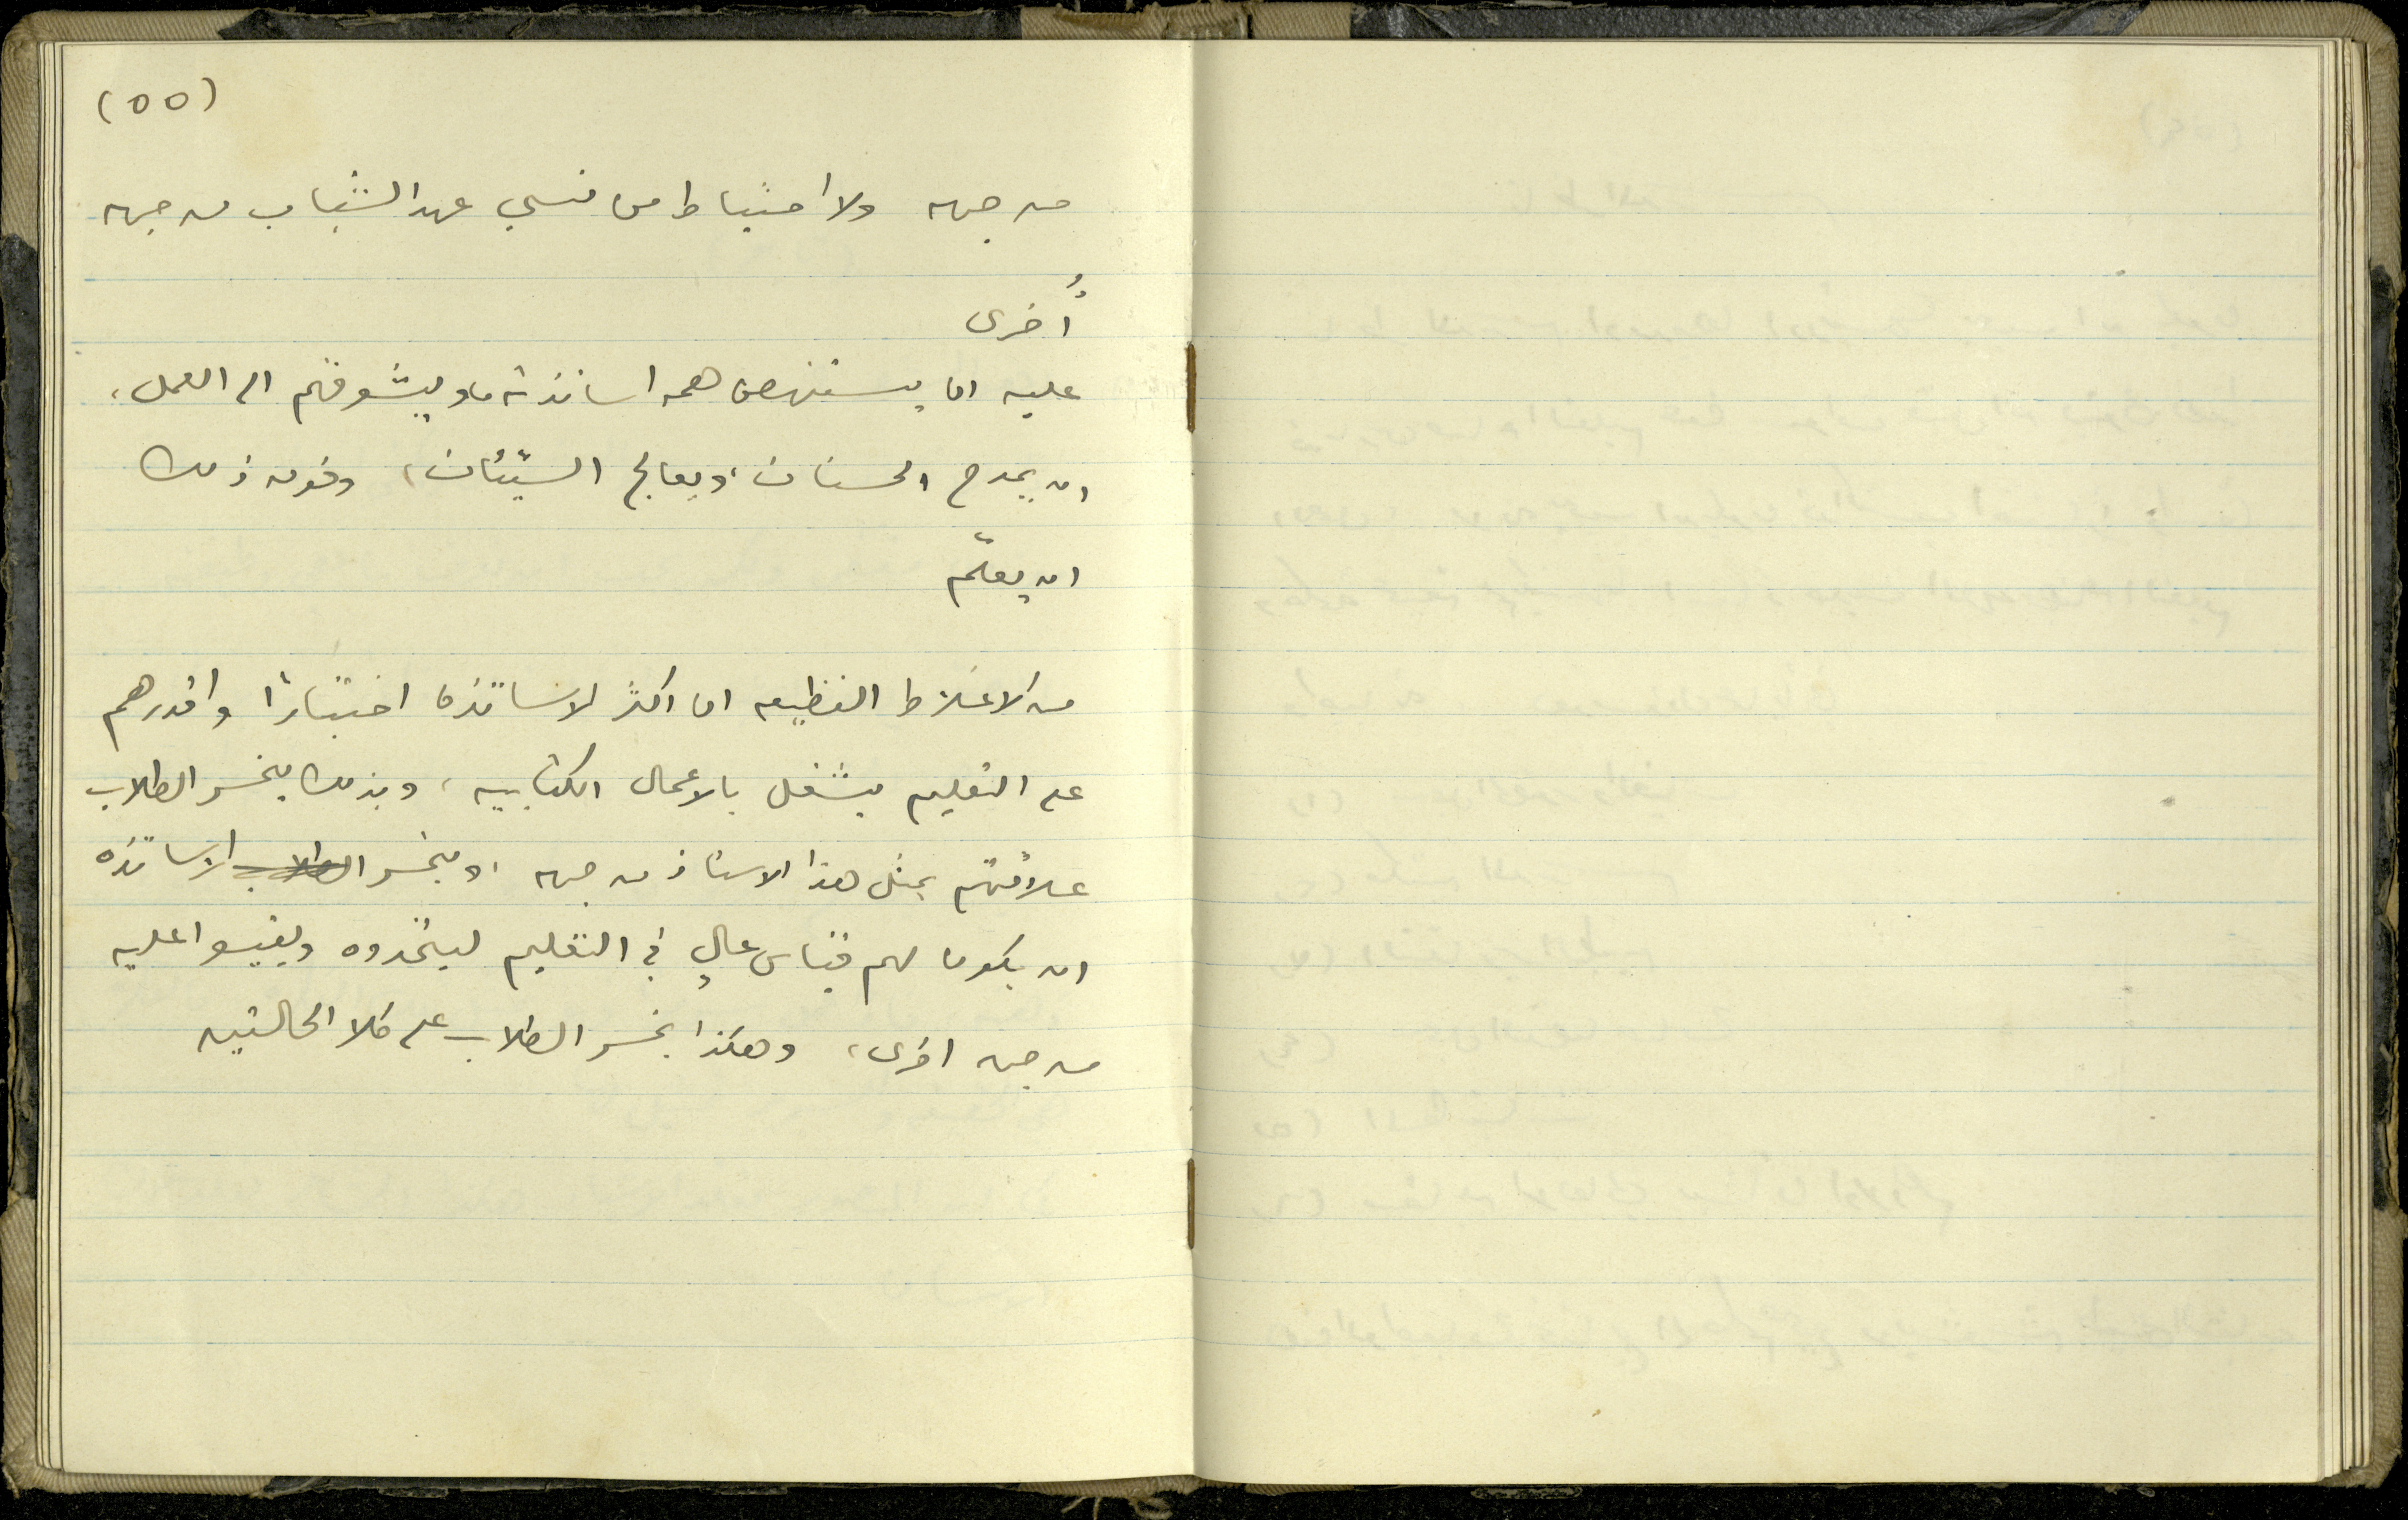 (٥٥)
من جهه ولا احتياط من نسي عهد الشباب من جهه
أُخرى
عليه ان يستنهض همه اساتذته، ويشوقهم الى العمل،
ان يمدح الحسنات، ويعالج السيّئات، وفوق ذلك
ان يعلّم
من الاغلاط الفظيعه ان اكثر الاساتذه اختبارًا واقدرهم
على التعليم يشغل بالاعمال الكتابيه، وبذلك يخسر الطلاب
علاقتهم بمثل هذا الاستاذ من جهه، ويخسر الطلاب الاساتذه
ان يكون لهم قياس عالٍ في التعليم ليتخذوه ويقيسوا عليه
من جهه اخرى، وهكذا يخسر الطلاب على كلا الحالتين